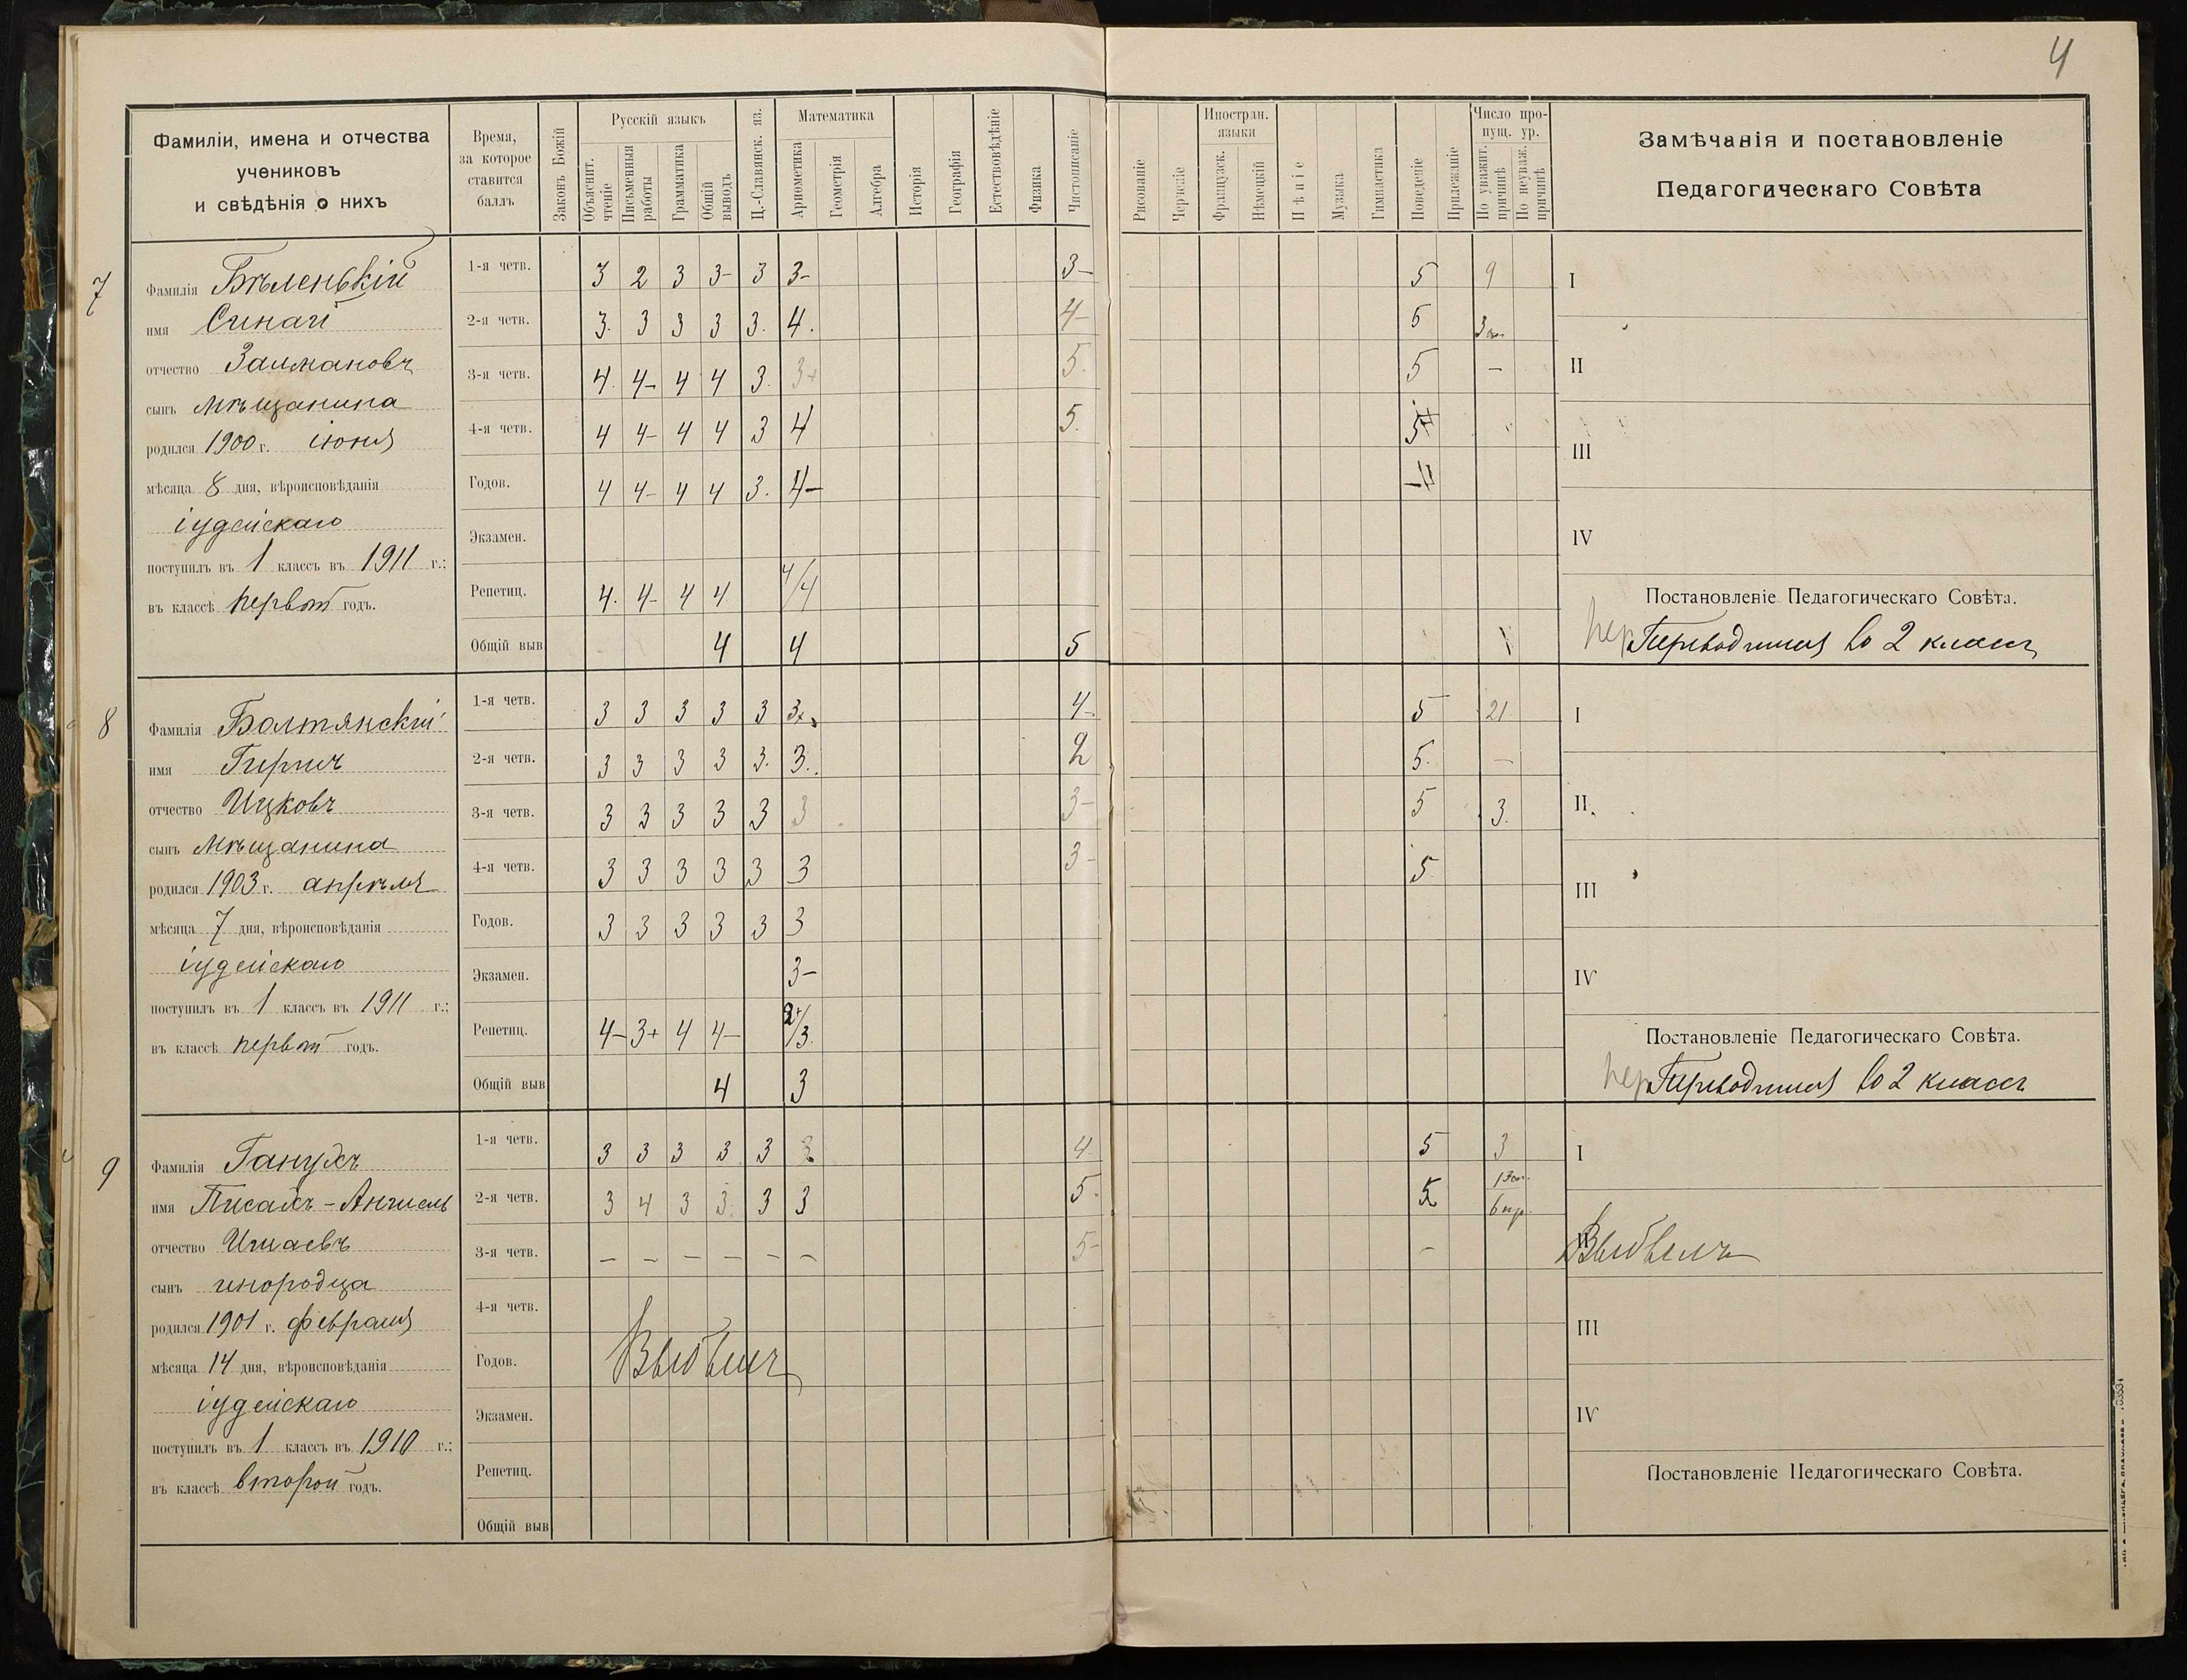 4
Фамиліи, имена и отчества
учениковъ
и свѣдѣнія о нихъ
Время,
за которое
ставится
баллъ
Законъ Божій
Русскій языкъ
Объяснит. чтеніе
Письменныя работы
Грамматика
Общій выводъ
Ц.-Славянск. яз.
Математика
Ариөметика
Геометрія
Алгебра
Исторія
Географія
Естествовѣдѣніе
Физика
Чистописаніе
Рисованіе
Черченіе
Иностран.
языки
Французск.
Нѣмецкій
Пѣніе
Музыка
Гимнастика
Поведеніе
Прилежаніе
Число про-
пущ. ур.
По уважит. причинѣ
По неуваж. причинѣ
Замѣчанія и постановленіе
Педагогическаго Совѣта
7
Фамилія Бѣленькій
имя Синай
отчество Залмановъ
сынъ мѣщанина
родился 1900 г. іюня
мѣсяца 8 дня, вѣроисповѣданія
іудейскаго
поступилъ въ 1 классъ въ 1911 г.;
въ классѣ первый годъ.
1-я четв. 3 2 3 3- 3 3- 3- 5 9
2-я четв. 3. 3 3 3 3. 4. 4- 5
3-я четв. 4. 4- 4 4 3. 3+ 5. 5 -
4-я четв. 4 4- 4 4 3 4 5. 5
Годов. 4 4- 4 4 3. 4-
Экзамен.
Репетиц. 4. 4- 4 4 4/4
Общій выв 4 4 5
I
II
III
IV
Постановленіе Педагогическаго Совѣта.
пер Переводится во 2 классъ
8
Фамилія Болтянскій
имя Гиршъ
отчество Ицковъ
сынъ мѣщанина
родился 1903 г. апрѣля
мѣсяца 7 дня, вѣроисповѣданія
іудейскаго
поступилъ въ 1 классъ въ 1911 г.;
въ классѣ первый годъ.
1-я четв. 3 3 3 3 3 4- 5 21
2-я четв. 3 3 3 3 3. 3. 2 5. -
3-я четв. 3 3 3 3 3 3 3- 5 3.
4-я четв. 3 3 3 3 3 3 3- 5
Годов. 3 3 3 3 3 3
Экзамен. 3-
Репетиц. 4- 3+ 4 4- 2+/3.
Общій выв 4 3
I
II
III
IV
Постановленіе Педагогическаго Совѣта.
пер Переводится во 2 классъ
9
Фамилія Ганухъ
имя Писахъ-Анчиель
отчество
сынъ инородца
родился 1901 г. февраля
мѣсяца 14 дня, вѣроисповѣданія
іудейскаго
поступилъ въ 1 классъ въ 1910 г.;
въ классѣ второй годъ.
1-я четв. 3 3 3 3 3 3 4 5 3
2-я четв. 3 4 3 3 3 3 5. 5
3-я четв. - - - - - - 5- -
4-я четв.
Годов. Выбылъ
Экзамен.
Репетиц.
Общій выв
I
II Выбылъ
III
IV
Постановленіе Педагогическаго Совѣта.